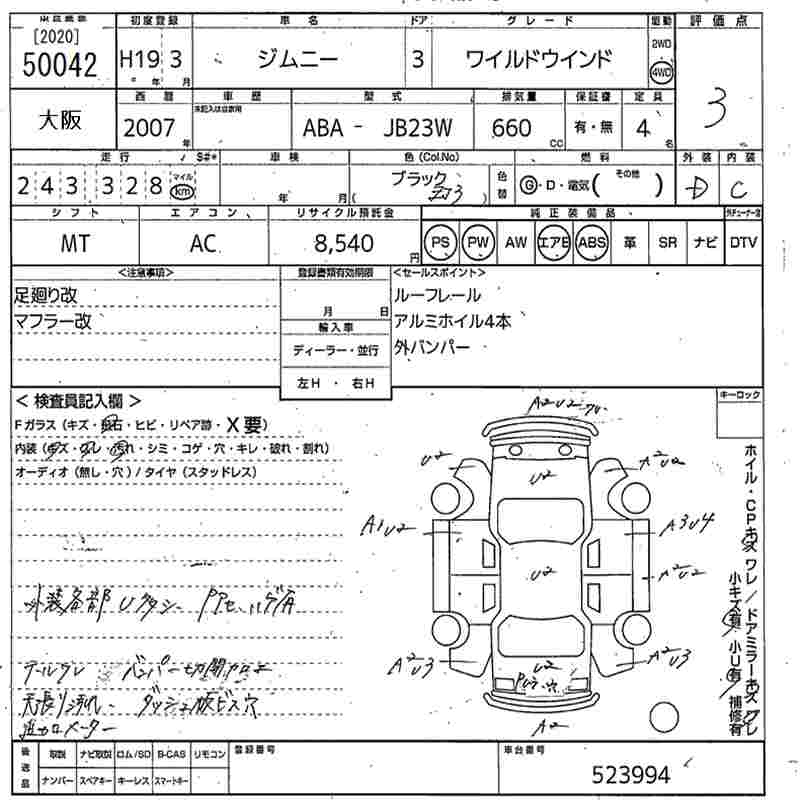 [2020] 初度登録 車名 ドア グレード 駆動 評価点
50042 H19 3 ジムニー 3 ワイルドウインド 2WD 4WD
年 月
3
大阪 西暦 車歴 型式 排気量 保証書 定員
未記入は自家用
2007 年 ABA - JB23W 660 CC 有・無 4 名
走行 S#* 車検 色 (Col.No) 燃料 外装 内装
243328 マイル km 年 月 ブラック 色替 G・D・電気( その他 ) D C
シフト エアコン リサイクル預託金 純正装備品
MT AC 8,540 円 PS PW AW エアB ABS 革 SR ナビ DTV
<注意事項> 登録書類有効期限 <セールスポイント>
足廻り改 ルーフレール
マフラー改 月 日 アルミホイル4本
輸入車 外バンパー
ディーラー・並行
左H ・ 右H
< 検査員記入欄 > キーロック
Fガラス (キズ・飛石・ヒビ・リペア跡・X要)
内装 (キズ・スレ・汚れ・シミ・コゲ・穴・キレ・破れ・割れ)
オーディオ (無し・穴) / タイヤ (スタッドレス)
A2U2
U2 U2 A2U2
A1U2 A3U4
U2 A2U2
外装各部
A2U3 U2 A2U3
穴
A2
ホイル・CPキズ ワレ / ドアミラーキズ ワレ
小キズ有 小U有 補修有
後送品 取説 ナビ取説 ロム/SD B-CAS リモコン 登録番号 車台番号
ナンバー スペアキー キーレス スマートキー 523994